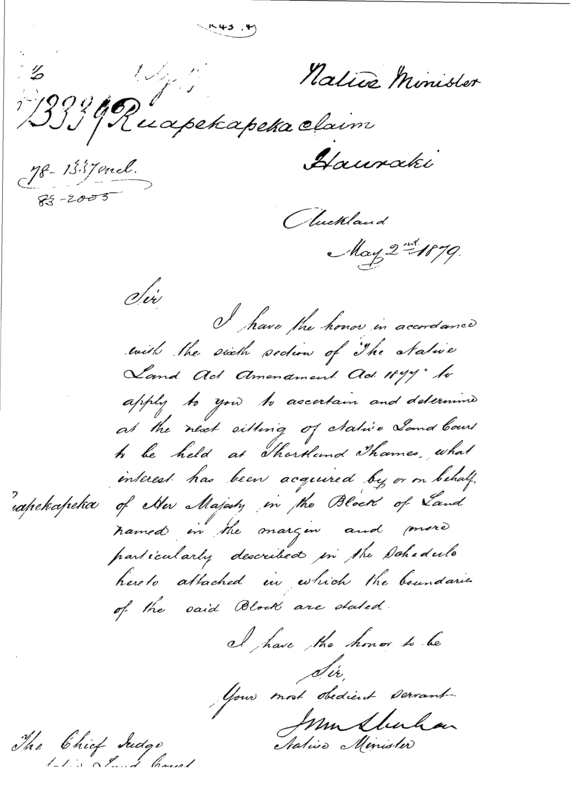 Native Minister
13339 Ruapekapeka claim
Hauraki
78-1337 encl.
83-2005
Auckland
May 2nd 1879.
Sir
I have the honor in accordance
with the sixth section of "The Native
Land Act Amendment Act 1877" to
apply to you to ascertain and determine
at the next sitting of Native Land Court
to be held at Shortland Thames, what
interest has been acquired by or on behalf
Ruapekapeka of Her Majesty in the Block of Land
named in the margin and more
particularly described in the Schedule
hereto attached in which the boundaries
of the said Block are stated.
I have the honor to be
Sir,
Your most obedient servant
John Sheehan
Native Minister
The Chief Judge
Native Land Court